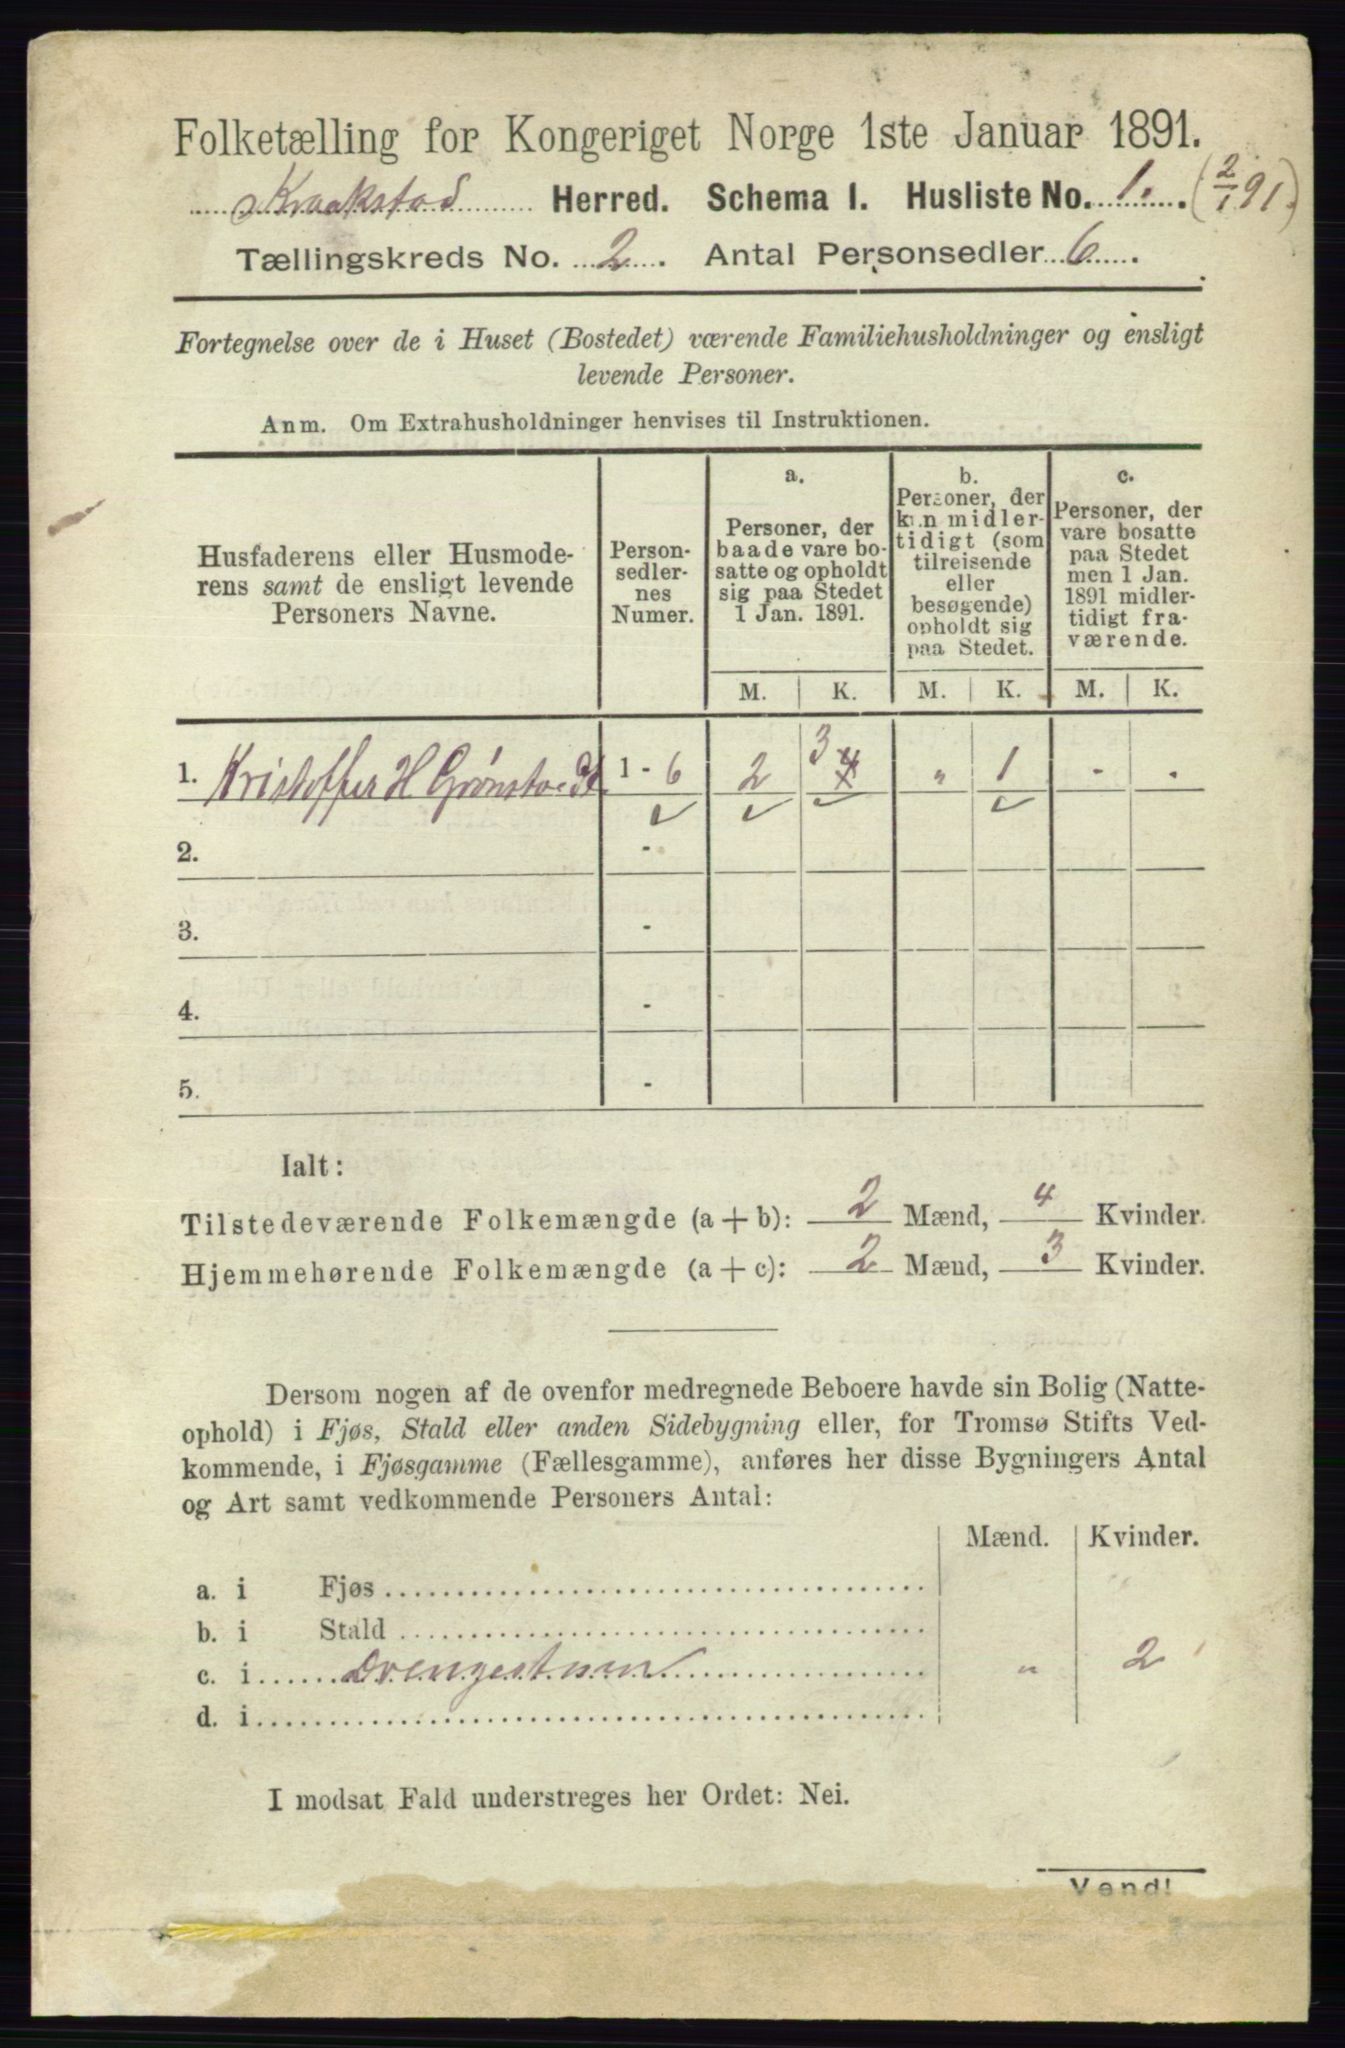 Folketælling for Kongeriget Norge 1ste Januar 1891.
Kraakstad Herred. Schema I. Husliste No. 1. (2/1 91.)
Tællingskreds No. 2. Antal Personsedler 6.
Fortegnelse over de i Huset (Bostedet) værende Familiehusholdninger og ensligt
levende Personer.
Anm. Om Extrahusholdninger henvises til Instruktionen.
Husfaderens eller Husmode-
rens samt de ensligt levende
Personers Navne.
Person-
sedler-
nes
Numer.
a.
Personer, der
baade vare bo-
satte og opholdt
sig paa Stedet
1 Jan. 1891.
b.
Personer, der
kun midler-
tidigt (som
tilreisende
eller
besøgende)
opholdt sig
paa Stedet.
c.
Personer, der
vare bosatte
paa Stedet
men 1 Jan.
1891 midler-
tidigt fra-
værende.
M. K. M. K. M. K.
1. Kristoffer H Grønstad 1 - 6 2 3 4 " 1 - .
2. -
3. -
4. -
5. -
Ialt:
Tilstedeværende Folkemængde (a + b): 2 Mænd, 4 Kvinder.
Hjemmehørende Folkemængde (a + c): 2 Mænd, 3 Kvinder.
Dersom nogen af de ovenfor medregnede Beboere havde sin Bolig (Natte-
ophold) i Fjøs, Stald eller anden Sidebygning eller, for Tromsø Stifts Ved-
kommende, i Fjøsgamme (Fællesgamme), anføres her disse Bygningers Antal
og Art samt vedkommende Personers Antal:
Mænd. Kvinder.
a. i Fjøs
b. i Stald
c. i Drengestuen " 2
d. i
I modsat Fald understreges her Ordet: Nei.
Vend!